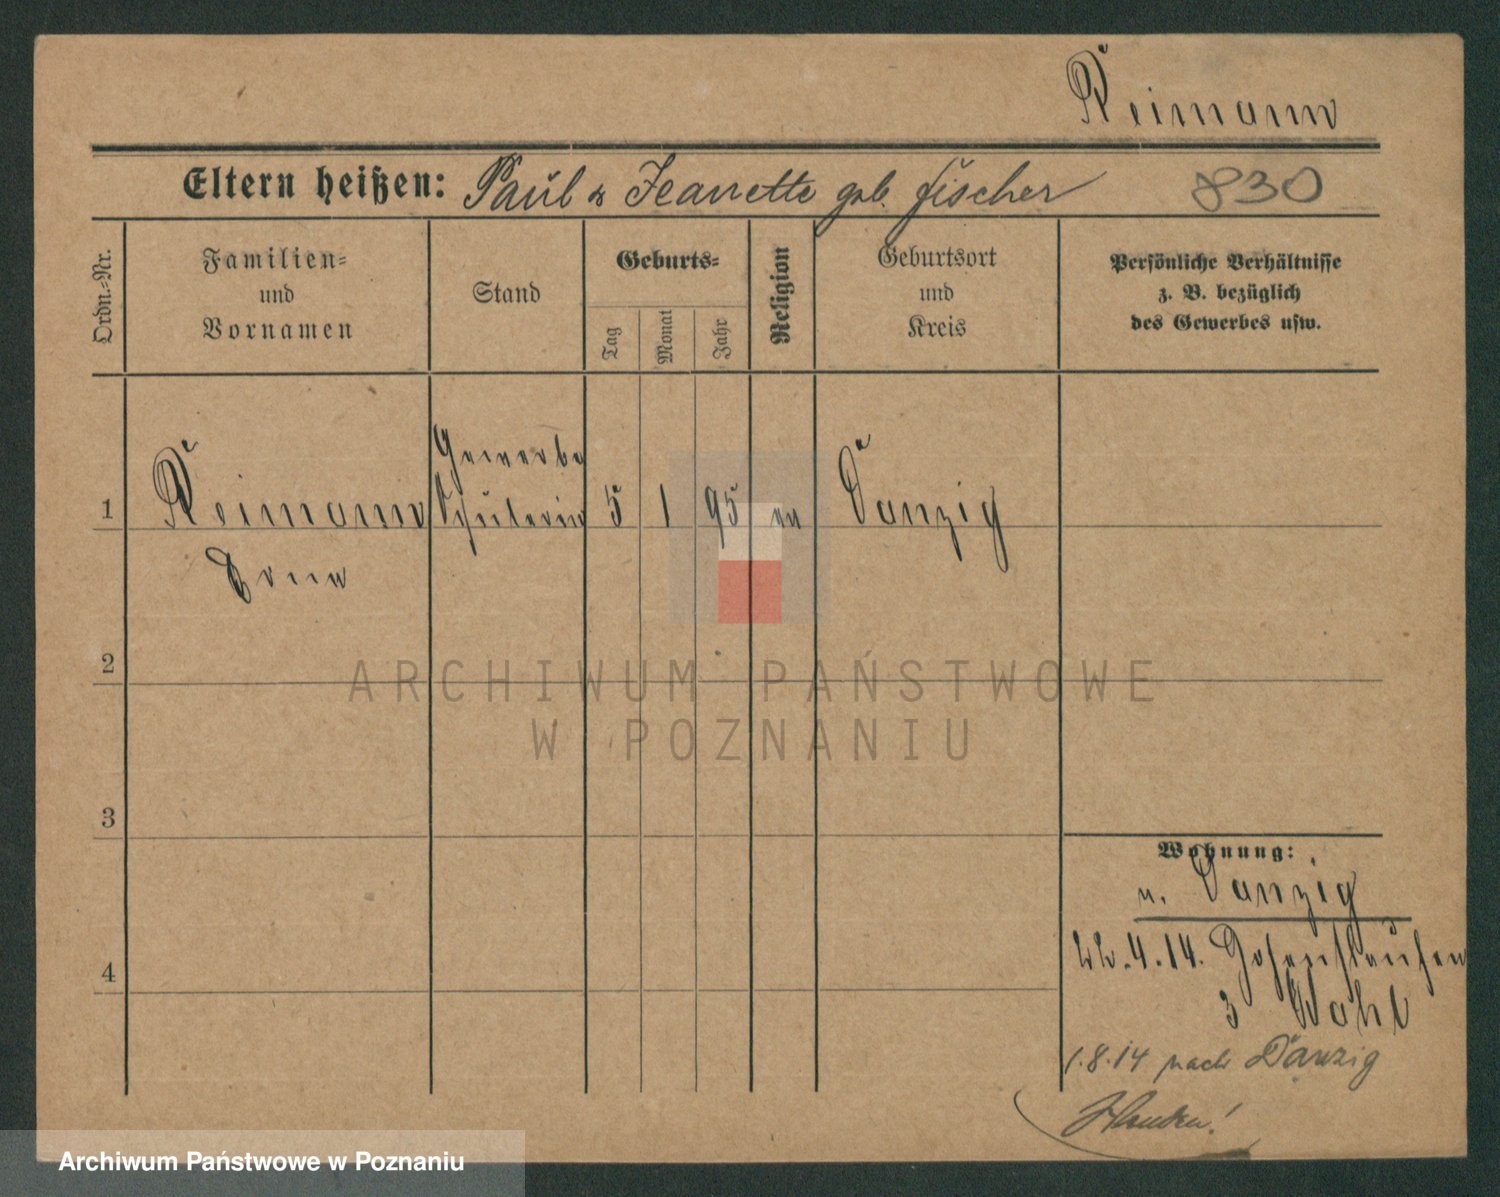 Reimann
Eltern heißen: Paul & Jeanette geb. Fischer 830
Ordn.-Nr.
Familien- und Vornamen
Stand
Geburts-
Tag
Monat
Jahr
Religion
Geburtsort und Kreis
Persönliche Verhältnisse z. B. bezüglich des Gewerbes usw.
Gewerbe
1 Reimann Schülerin 5 1 95 ev Danzig
Erna
2
ARCHIWUM PAŃSTWOWE
W POZNANIU
3
Wohnung:
v. Danzig
4
22.4.14. Hohenstaufen
3
1.8.14 nach Danzig
Archiwum Państwowe w Poznaniu